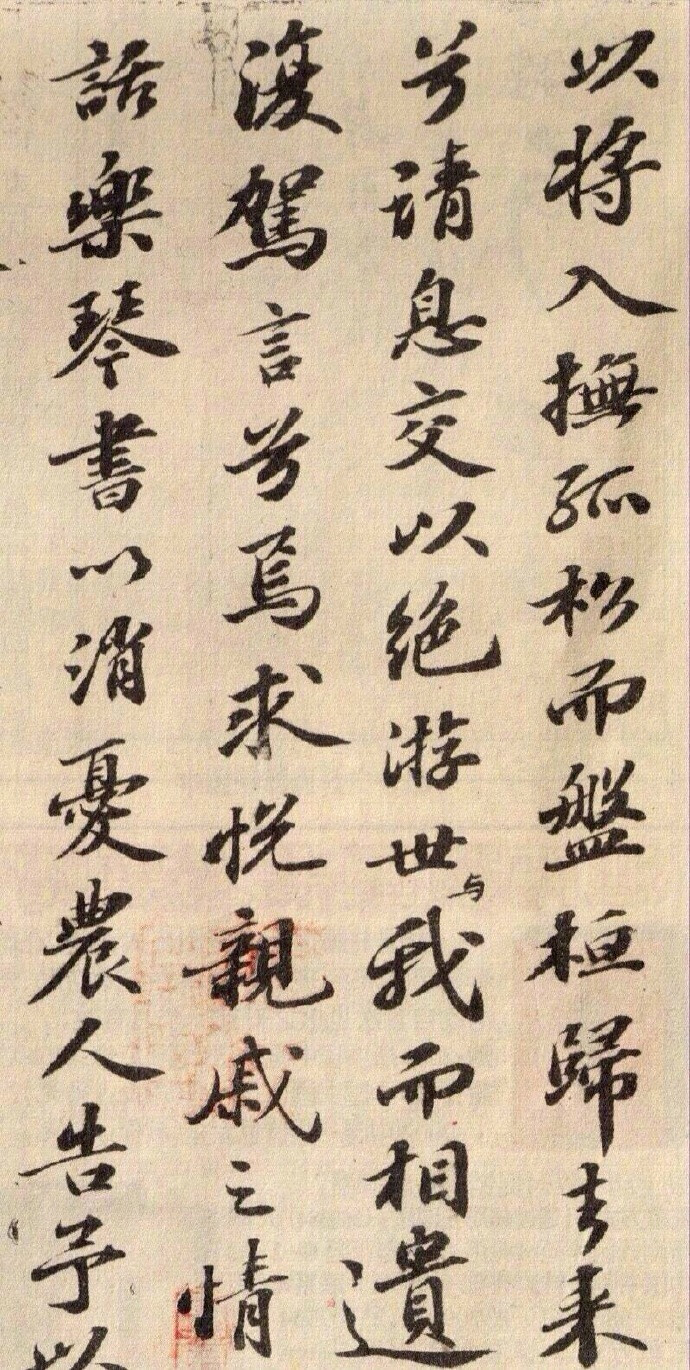 以将入撫孤松而盤桓歸去来
兮請息交以绝游世与我而相遺
復駕言兮焉求悦親戚之情
話樂琴書以消憂農人告予以